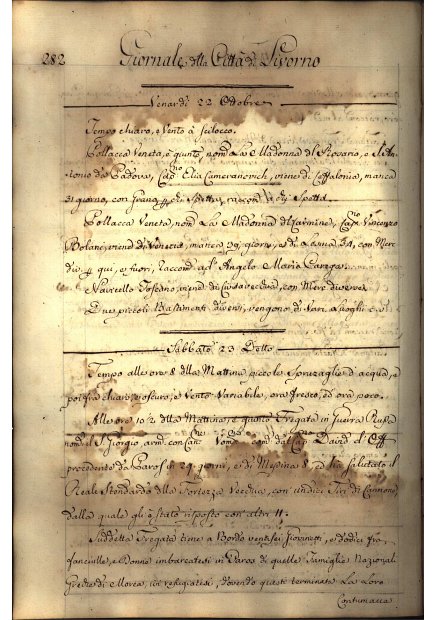 282 Giornale della Città di Livorno
Venardì 22 Ottobre
Tempo chiaro, e Vento à Scilocco.
Pollacca Veneta, è giunta, nom La Madonna del Rosario, e S. An=
tonio da Padova, Cap.no Elia Cameranovich, viene di Ceffalonia, manca
31 giorno, con Grano p chi Spetta, raccom à chi Spetta
Pollacca Veneta, nom La Madonna del Carmine, Cap.no Vincenzo
Bolanc, viene di Venezia, manca 39 giorni, e di Lesina 34, con Merc
div. p qui, e fuori, raccom ad Angelo Maria Carega
Navicello Toscano, viene di Civitavecchia, con Merc diverse
Due piccoli Bastimenti diversi, vengono di Vari Luoghi
Sabbato 23 Detto
Tempo alle ore 8 della Mattina piccole Spruzzaglie d'acqua, e
poi fra chiaro, e oscuro, e Vento Variabile, ora fresco, ed ora poco.
Alle ore 10 1/2 della Mattina, è giunta Fregata in Guerra Russa
nom. il S. Giorgio, arm. con Can. Com. dal Cap. David
precedente da Paros in 29 giorni, e di Messina 8, ed ha salutato il
Reale Stendardo della Fortezza Vecchia, con undici Tiri di Cannone
dalla quale gli è stato risposto con altri 11.
Suddetta Fregata tiene a Bordo ventisei Giovanetti, e dodici fra
fanciulle, e Donne imbarcatesi in Paros di quelle Famiglie Nazionali
Greche di Morea, ivi refugiatesi, dovendo queste terminata La Loro
Contumacia